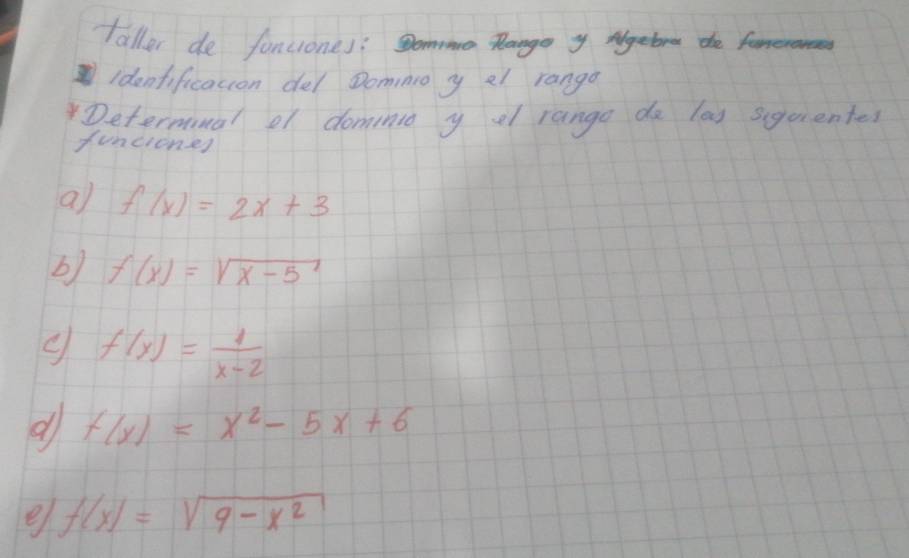 Taller de funciones: Dominio Rango y Algebra de funciones
I Identificacion del Dominio y el rango
* Determinal el dominio y el rango de las siguientes
funciones
a) f(x) = 2x + 3
b) f(x) = √(x - 5)
c) f(x) = 1/(x-2)
d) f(x) = x² - 5x + 6
e) f(x) = √(9 - x²)